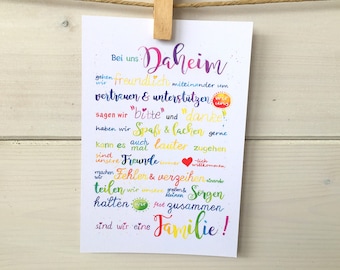 Bei uns Daheim
gehen wir freundlich miteinander um
vertrauen & unterstützen
sagen wir "bitte" und "danke"
haben wir Spaß & lachen gerne
kann es auch mal lauter zugehen
sind unsere Freunde immer ♥-lich willkommen
machen wir Fehler & verzeihen
teilen wir unsere großen & kleinen Sorgen
halten zusammen
sind wir eine Familie!